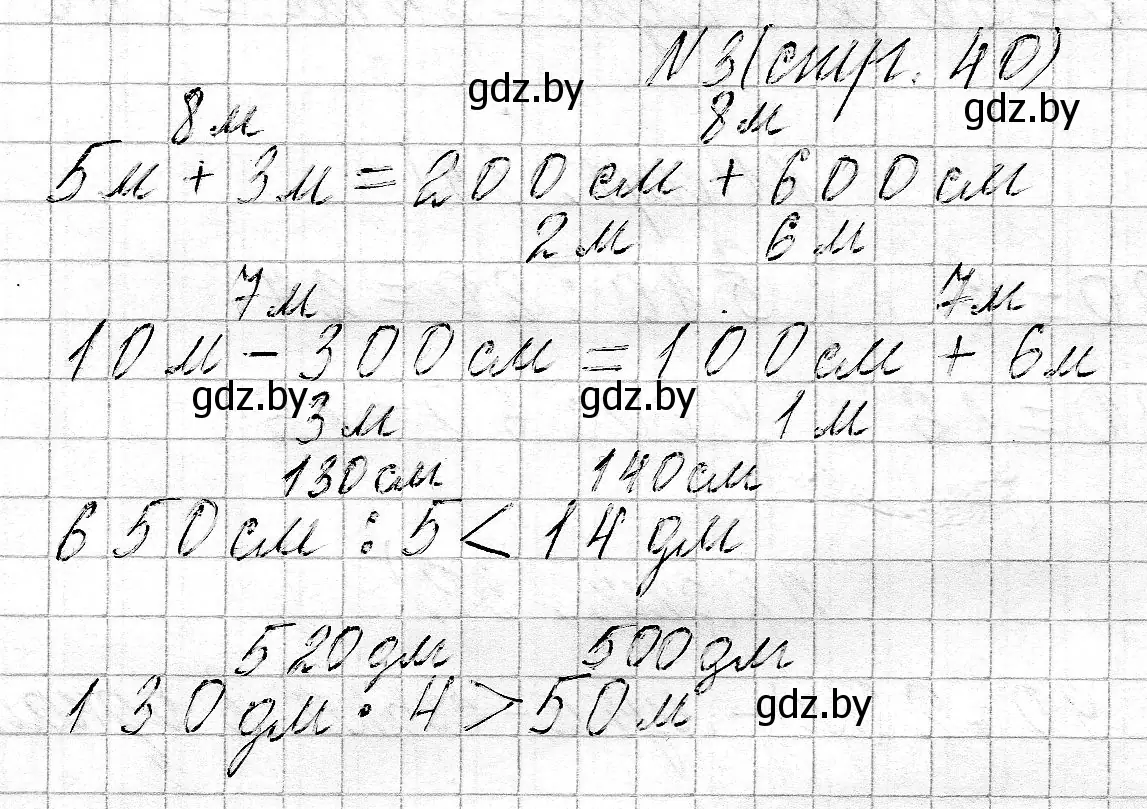 № 3 (стр. 40)
gdz.by gdz.by
8м 8м
5м + 3м = 200 см + 600 см
2м 6м
7м 7м
10м - 300 см = 100 см + 6м
gdz.by gdz.by
3м 1м
130 см 140 см
650 см : 5 < 14 дм
520 дм 500 дм
130 дм · 4 > 50 м
gdz.by